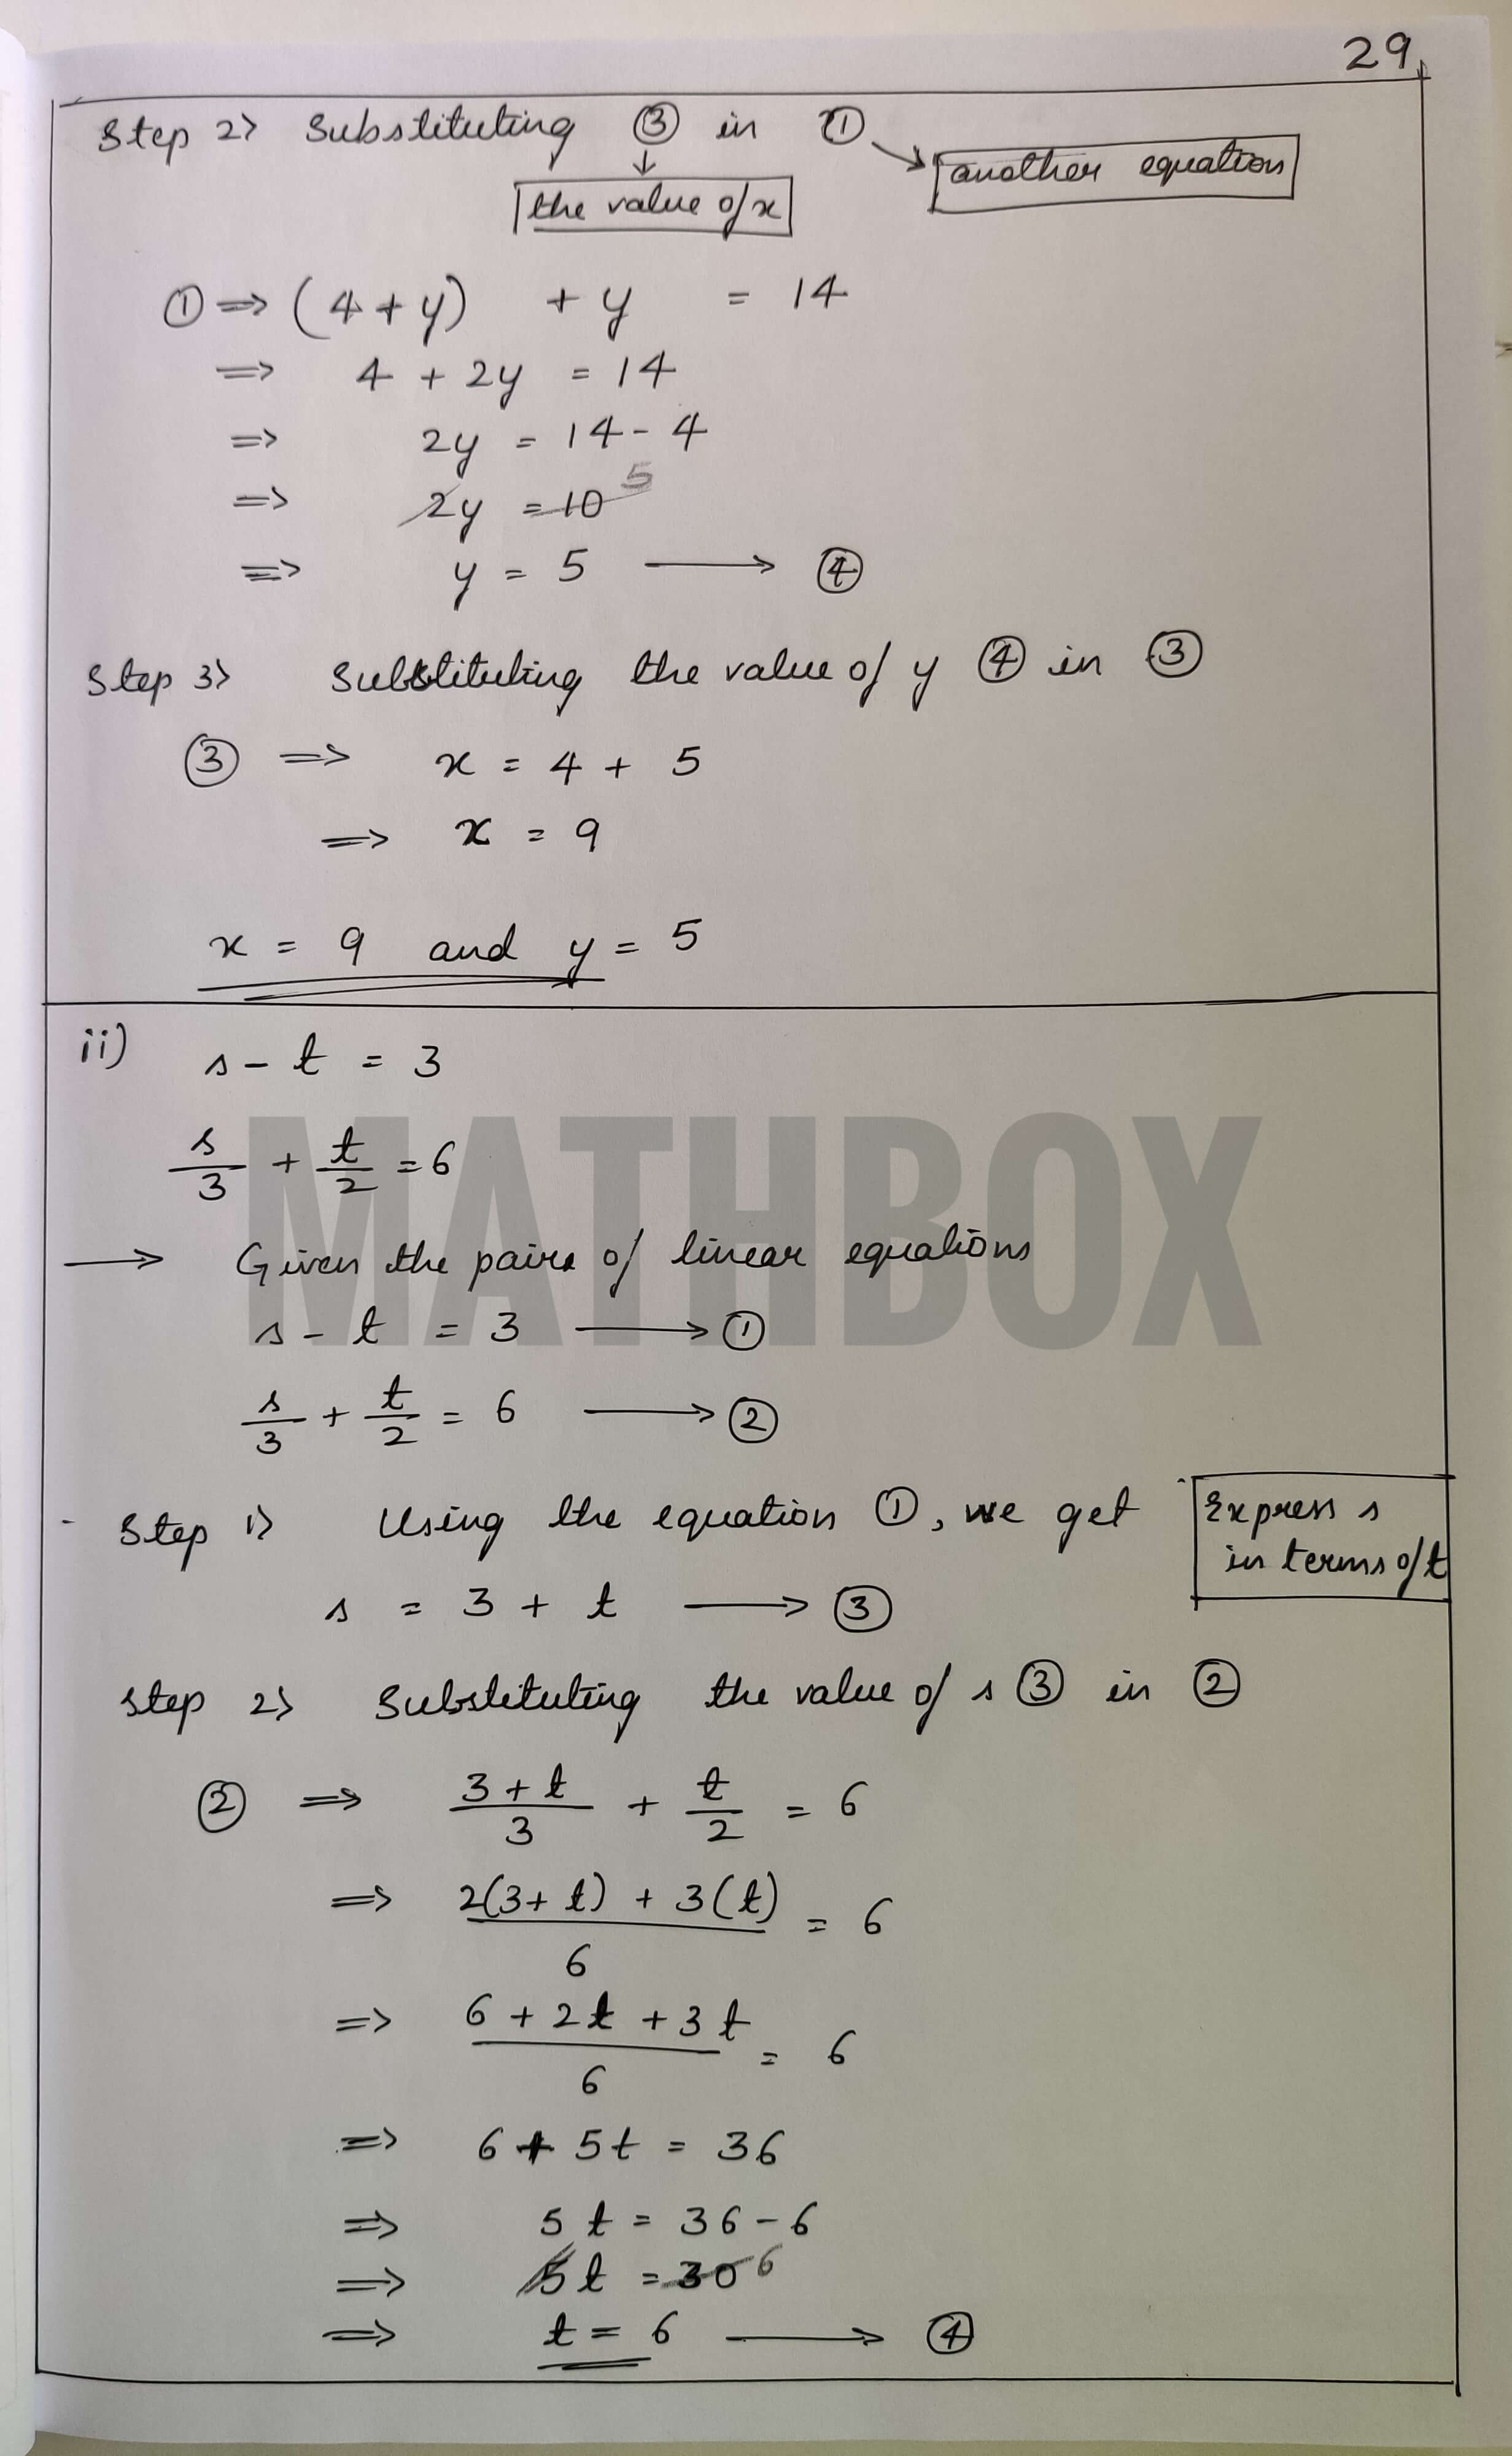 29
Step 2> Substituting ③ in ①
another equation
the value of x
① => (4 + y) + y = 14
=> 4 + 2y = 14
=> 2y = 14 - 4
=> 2y = 10 5
=> y = 5 ⟶ ④
Step 3> Substituting the value of y ④ in ③
③ => x = 4 + 5
=> x = 9
x = 9 and y = 5
ii) s - t = 3
s/3 + t/2 = 6
⟶ Given the pairs of linear equations
s - t = 3 ⟶ ①
s/3 + t/2 = 6 ⟶ ②
Step 1> Using the equation ①, we get
Express s
in terms of t
s = 3 + t ⟶ ③
Step 2> Substituting the value of s ③ in ②
② => (3 + t)/3 + t/2 = 6
=> (2(3 + t) + 3(t))/6 = 6
=> (6 + 2t + 3t)/6 = 6
=> 6 + 5t = 36
=> 5t = 36 - 6
=> 5t = 30 6
=> t = 6 ⟶ ④
MATHBOX